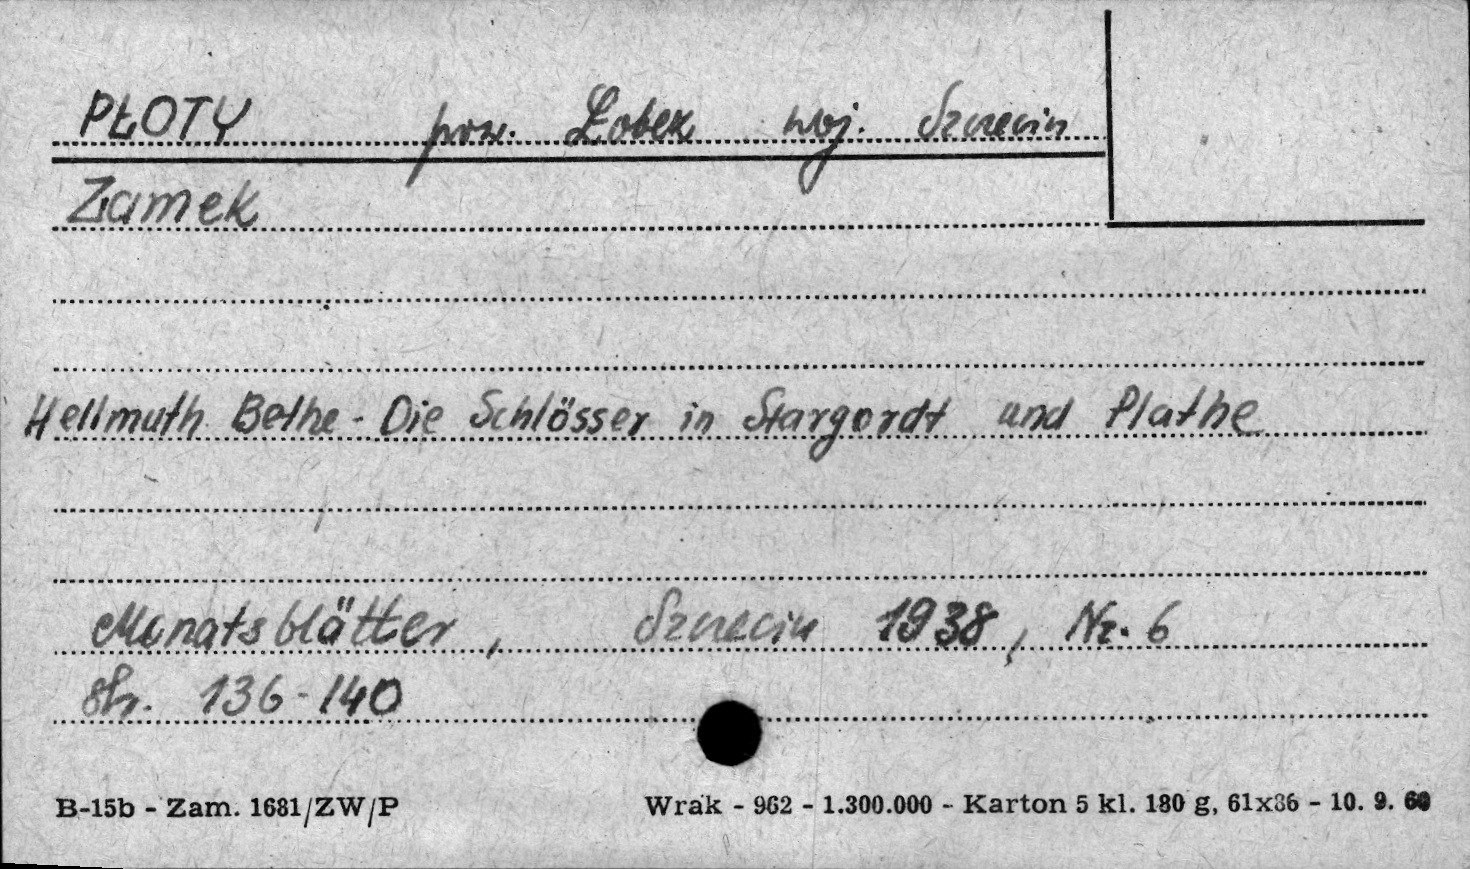 PŁOTY pow. Łobez woj. Szczecin
Zamek
Hellmuth Bethe - Die Schlösser in Stargordt und Plathe
Monatsblätter, Szczecin 1938, Nr. 6
str. 136-140
B-15b - Zam. 1681/ZW/P Wrak - 962 - 1.300.000 - Karton 5 kl. 180 g, 61x86 - 10. 9. 60